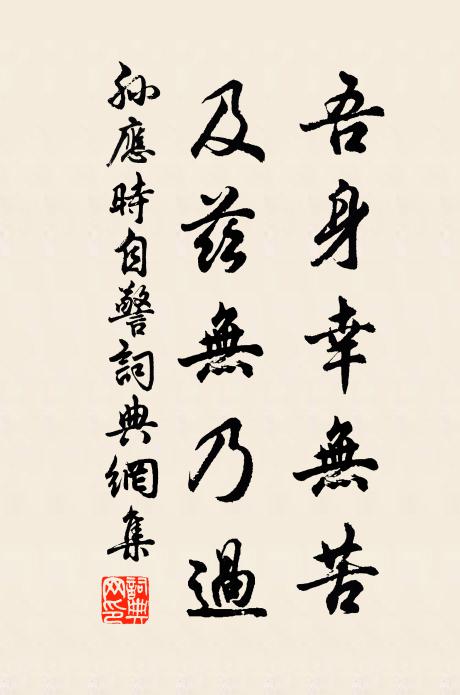 吾身幸無苦
及茲無乃過
孫應時自警詞典網集
詞典网印